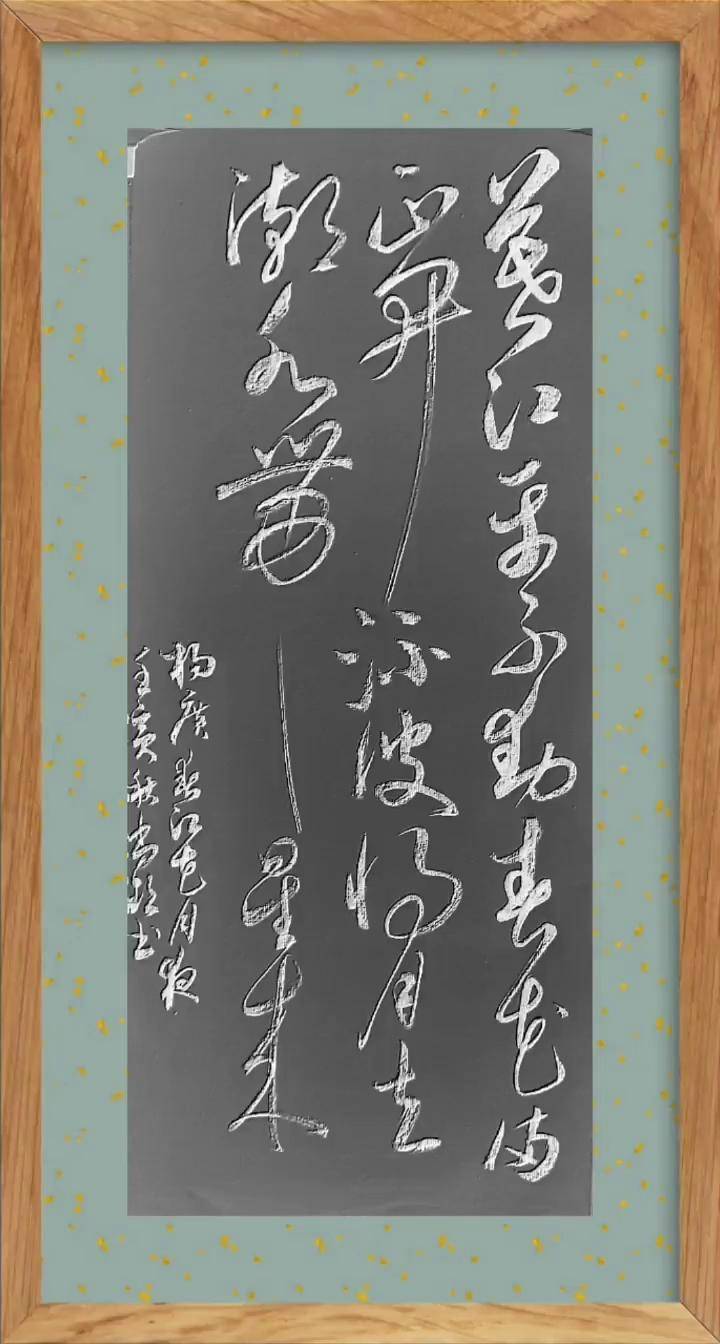 暮江平不動春花满
正開流波将月去
潮水帶星来
杨广春江花月夜
壬寅秋书